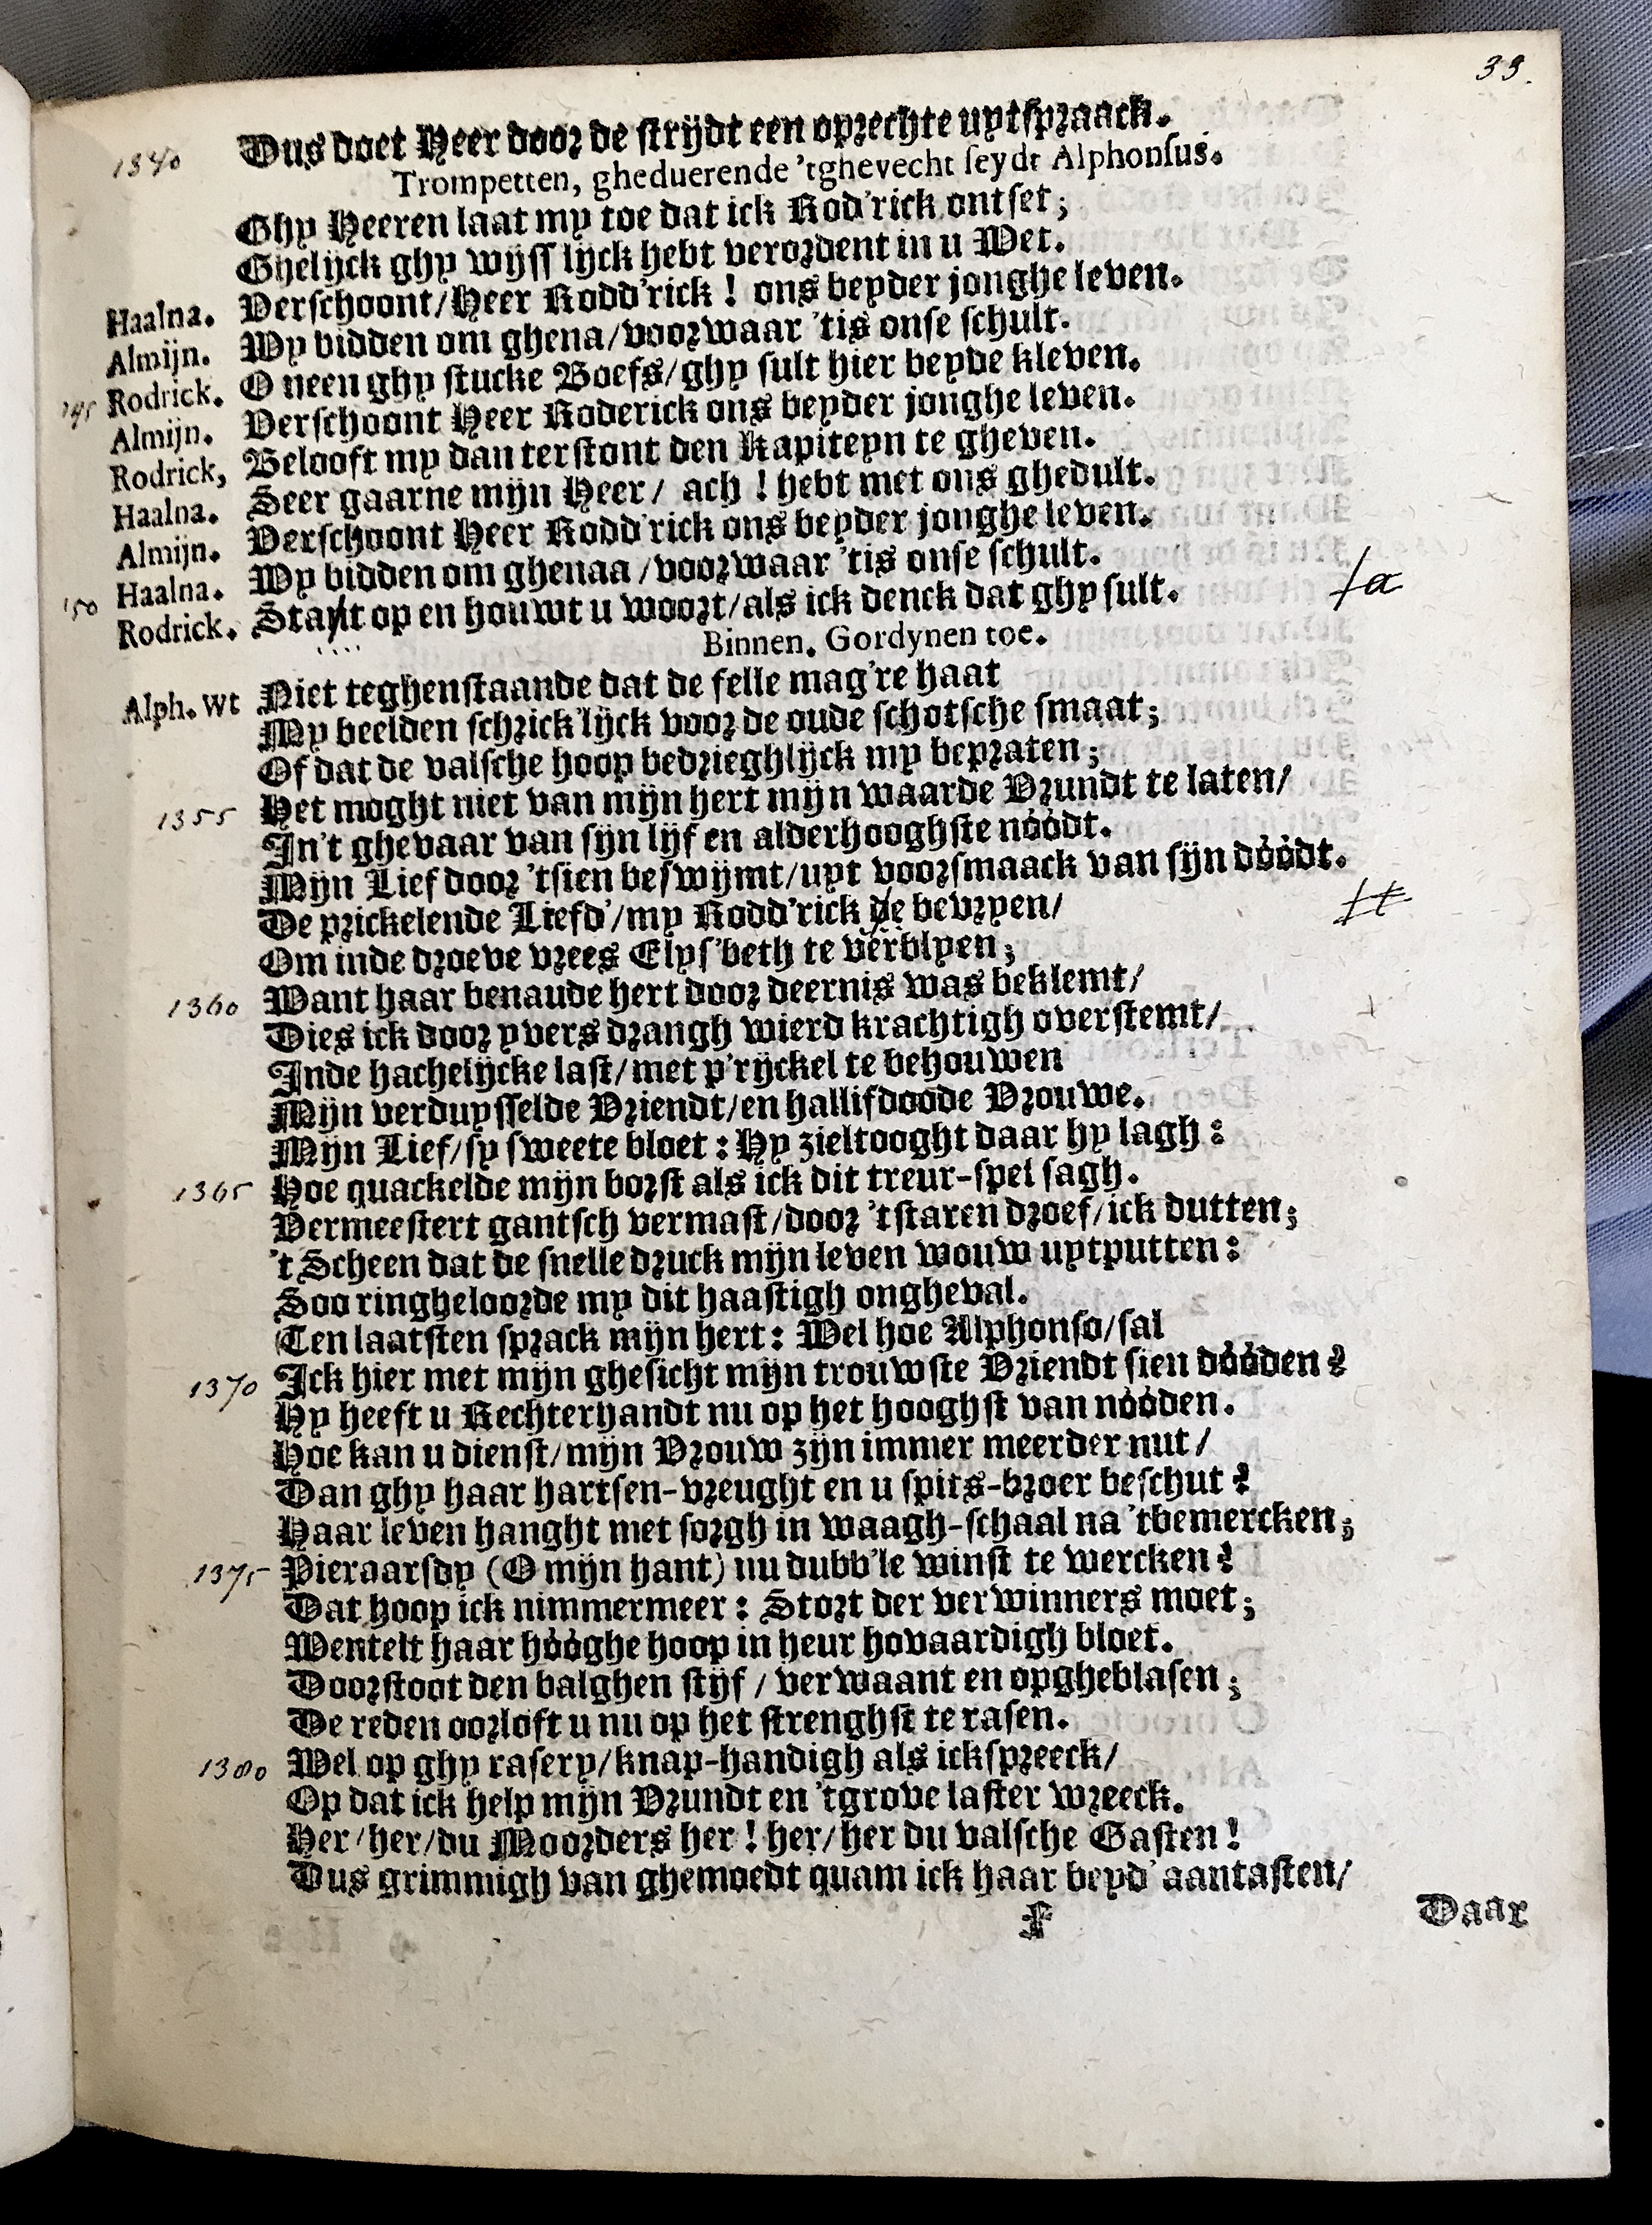 33.
1340 Dus doet Heer door de strijdt een oprechte uytspraack.
Trompetten, gheduerende 'tghevecht seydt Alphonsus.
Ghy Heeren laat my toe dat ick Rod'rick ontset;
Ghelijck ghy wijss'lijck hebt verordent in u Wet.
Haalna. Verschoont/Heer Rodd'rick! ons beyder jonghe leven.
Almijn. Wy bidden om ghena/voorwaar 'tis onse schult.
'345 Rodrick. O neen ghy stucke Boefs/ghy sult hier beyde kleven.
Almijn. Verschoont Heer Roderick ons beyder jonghe leven.
Rodrick, Belooft my dan terstont den Kapiteyn te gheven.
Haalna. Seer gaarne mijn Heer/ ach! hebt met ons ghedult.
Almijn. Verschoont Heer Rodd'rick ons beyder jonghe leven.
'50 Haalna. Wy bidden om ghenaa/voorwaar 'tis onse schult.
Rodrick. Stayt op en houwt u woort/als ick denck dat ghy sult. /a
Binnen. Gordynen toe.
Alph. wt Niet teghenstaande dat de felle mag're haat
My beelden schrick'lijck voor de oude schotsche smaat;
Of dat de valsche hoop bedrieghlijck my bepraten;
1355 Het moght niet van mijn hert mijn waarde Vrundt te laten/
In't ghevaar van sijn lijf en alderhooghste nóódt.
Mijn Lief door 'tsien beswijmt/uyt voorsmaack van sijn dóódt.
De prickelende Liefd'/my Rodd'rick de bevryen/ /t
Om inde droeve vrees Elys'beth te verblyen;
1360 Want haar benaude hert door deernis was beklemt/
Dies ick door yvers drangh wierd krachtigh overstemt/
Inde hachelijcke last/met p'rijckel te behouwen
Mijn verduysselde Vriendt/en hallifdoode Vrouwe.
Mijn Lief/sy sweete bloet: Hy zieltooght daar hy lagh:
1365 Hoe quackelde mijn borst als ick dit treur-spel sagh.
Vermeestert gantsch vermast/door 'tstaren droef/ick dutten;
't Scheen dat de snelle druck mijn leven wouw uytputten:
Soo ringheloorde my dit haastigh ongheval.
Ten laatsten sprack mijn hert: Wel hoe Alphonso/sal
1370 Ick hier met mijn ghesicht mijn trouwste Vriendt sien dóóden?
Hy heeft u Rechterhandt nu op het hooghst van nóóden.
Hoe kan u dienst/mijn Vrouw zijn immer meerder nut/
Dan ghy haar hartsen-vreught en u spits-broer beschut?
Haar leven hanght met sorgh in waagh-schaal na 'tbemercken;
1375 Pieraarsdy (O mijn hant) nu dubb'le winst te wercken?
Dat hoop ick nimmermeer: Stort der verwinners moet;
Wentelt haar hóóghe hoop in heur hovaardigh bloet.
Doorstoot den balghen stijf/verwaant en opgheblasen;
De reden oorloft u nu op het strenghst te rasen.
1380 Wel op ghy rasery/knap-handigh als ick spreeck/
Op dat ick help mijn Vrundt en 'tgrove laster wreeck.
Her/her/du Moorders her! her/her du valsche Gasten!
Dus grimmigh van ghemoedt quam ick haar beyd' aantasten/
F
Daar